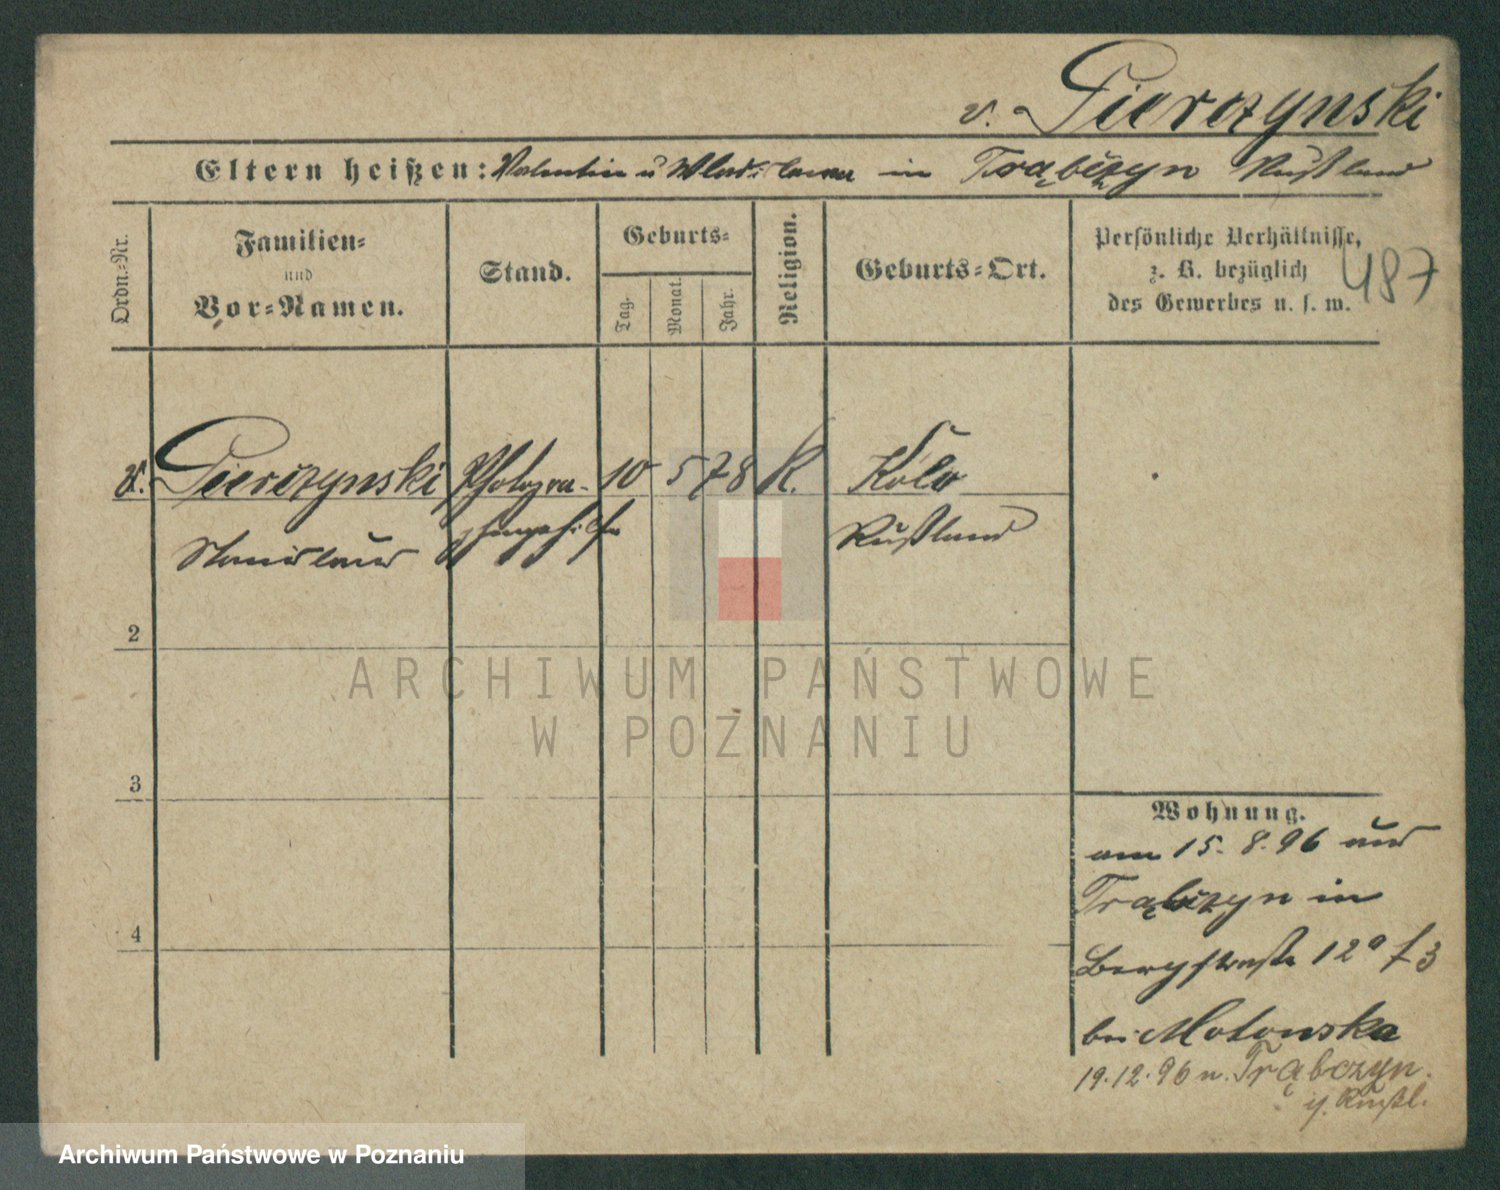 v. Pierczynski
Eltern heißen: Valentin u Wladislawa in Trąbczyn Rußland
Ordn.-Nr.
Familien-
und
Vor-Namen.
Stand.
Geburts-
Tag.
Monat.
Jahr.
Religion.
Geburts-Ort.
Persönliche Verhältnisse,
z. B. bezüglich
des Gewerbes u. s. w.
487
v. Pierczynski Photogra- 10 5 78 K. Koło
Stanislaus phengehilfe Rußland
2
3
4
Wohnung.
am 15. 8. 96 aus
Trąbczyn in
Bergstraße 12a f 3
bei Motonska
19.12.96 n. Trąbczyn.
i. Rußl.
ARCHIWUM PAŃSTWOWE
W POZNANIU
Archiwum Państwowe w Poznaniu